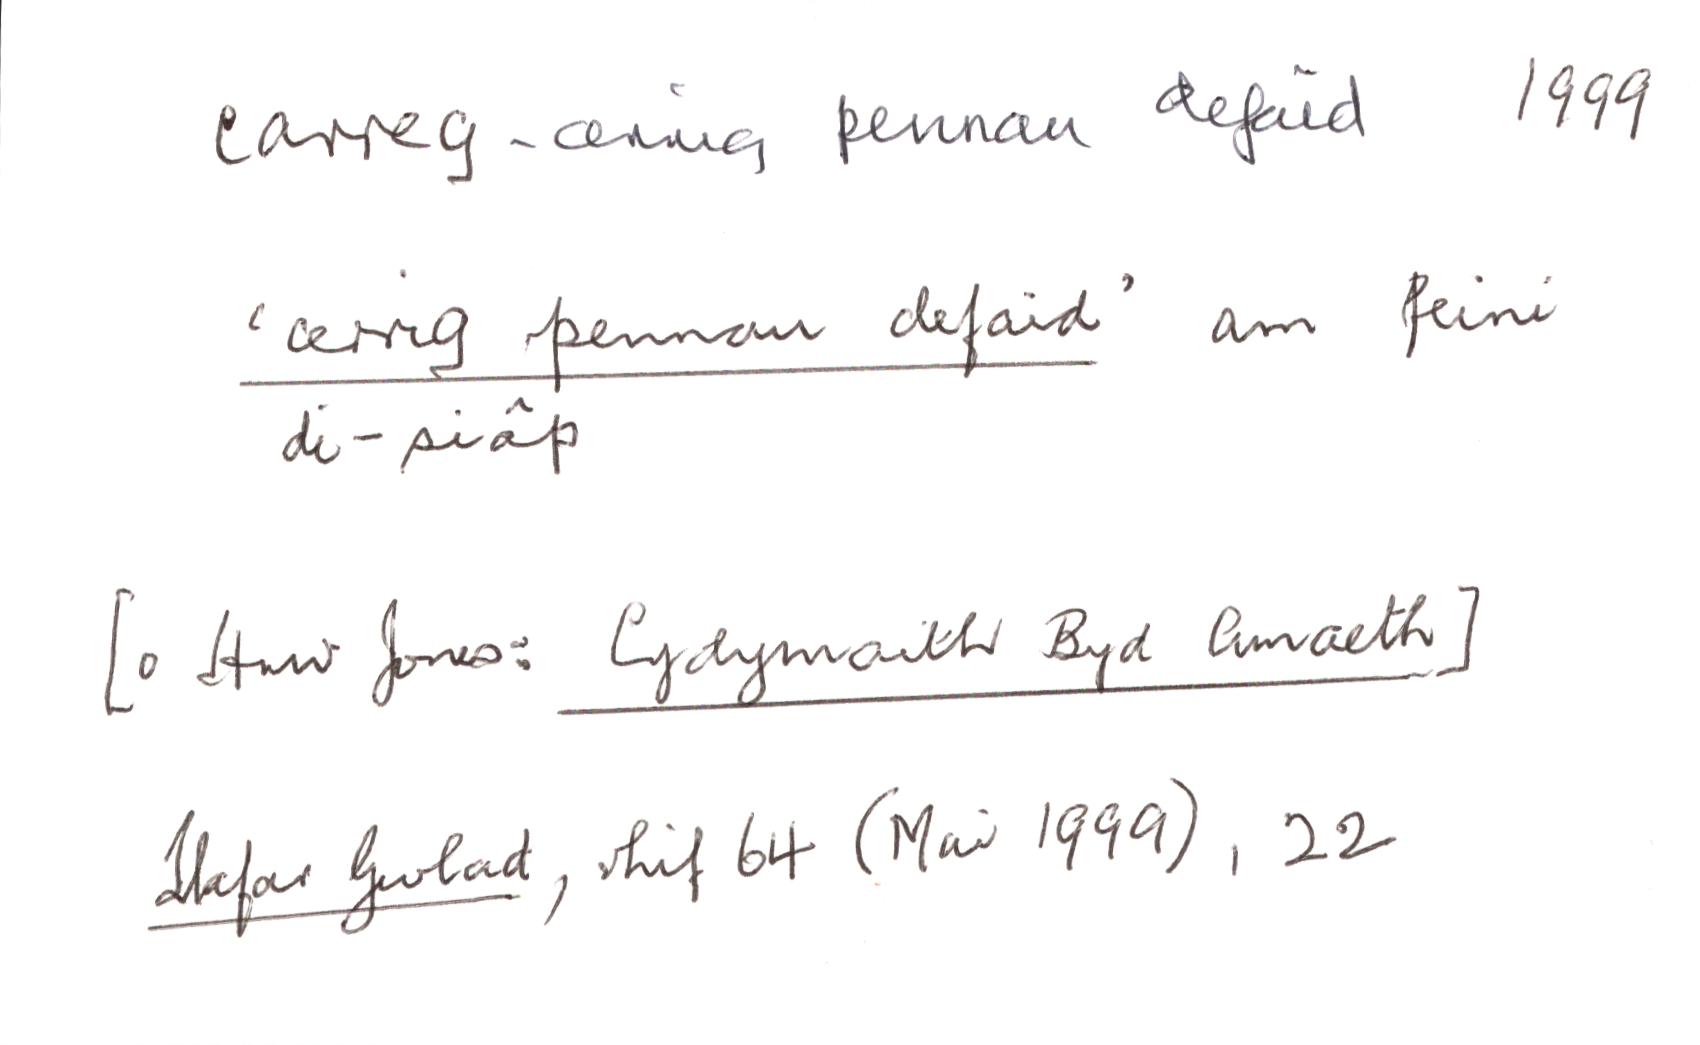 carreg - cerrig pennau defaid 1999
'cerrig pennau defaid' am feini
di-siâp
[o Huw Jones: Cydymaith Byd Amaeth]
Llafar Gwlad, rhif 64 (Mai 1999), 22